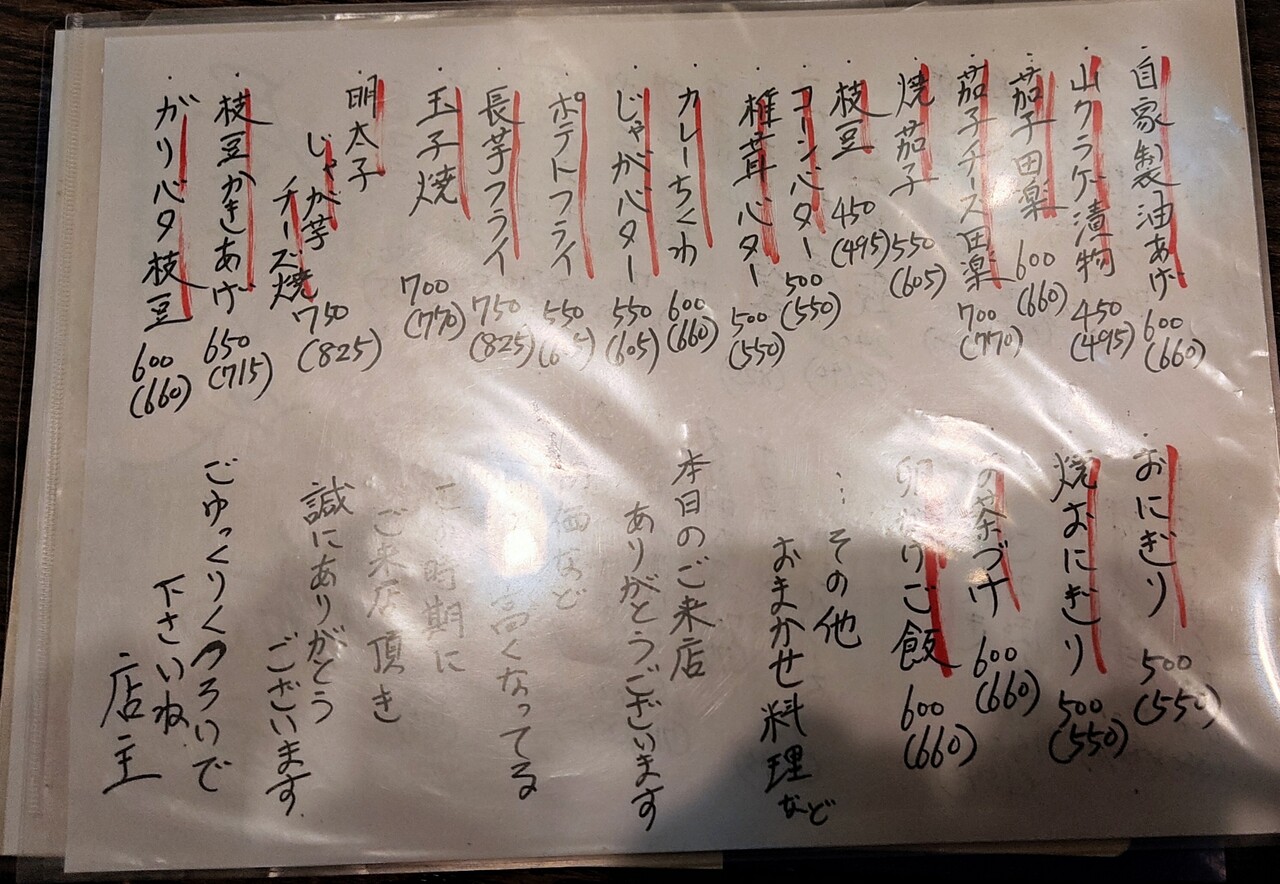 自家製油あげ 600 (660)
山クラゲ漬物 450 (495)
茄子田楽 600 (660)
茄子チーズ田楽 700 (770)
焼茄子 550 (605)
枝豆 450 (495)
コーンバター 500 (550)
椎茸バター 500 (550)
カレーちくわ 600 (660)
じゃがバター 550 (605)
ポテトフライ 550
長芋フライ 750 (825)
玉子焼 700 (770)
明太子
じゃが芋
チーズ焼 750 (825)
枝豆かきあげ 650 (715)
ガリバタ枝豆 600 (660)
おにぎり 500 (550)
焼おにぎり 500 (550)
茶づけ 600 (660)
卵かけご飯 600 (660)
…その他
おまかせ料理など
本日のご来店
ありがとうございます
価など
高くなってる
この時期に
ご来店頂き
誠にありがとう
ございます
ごゆっくりくつろいで
下さいね
店主